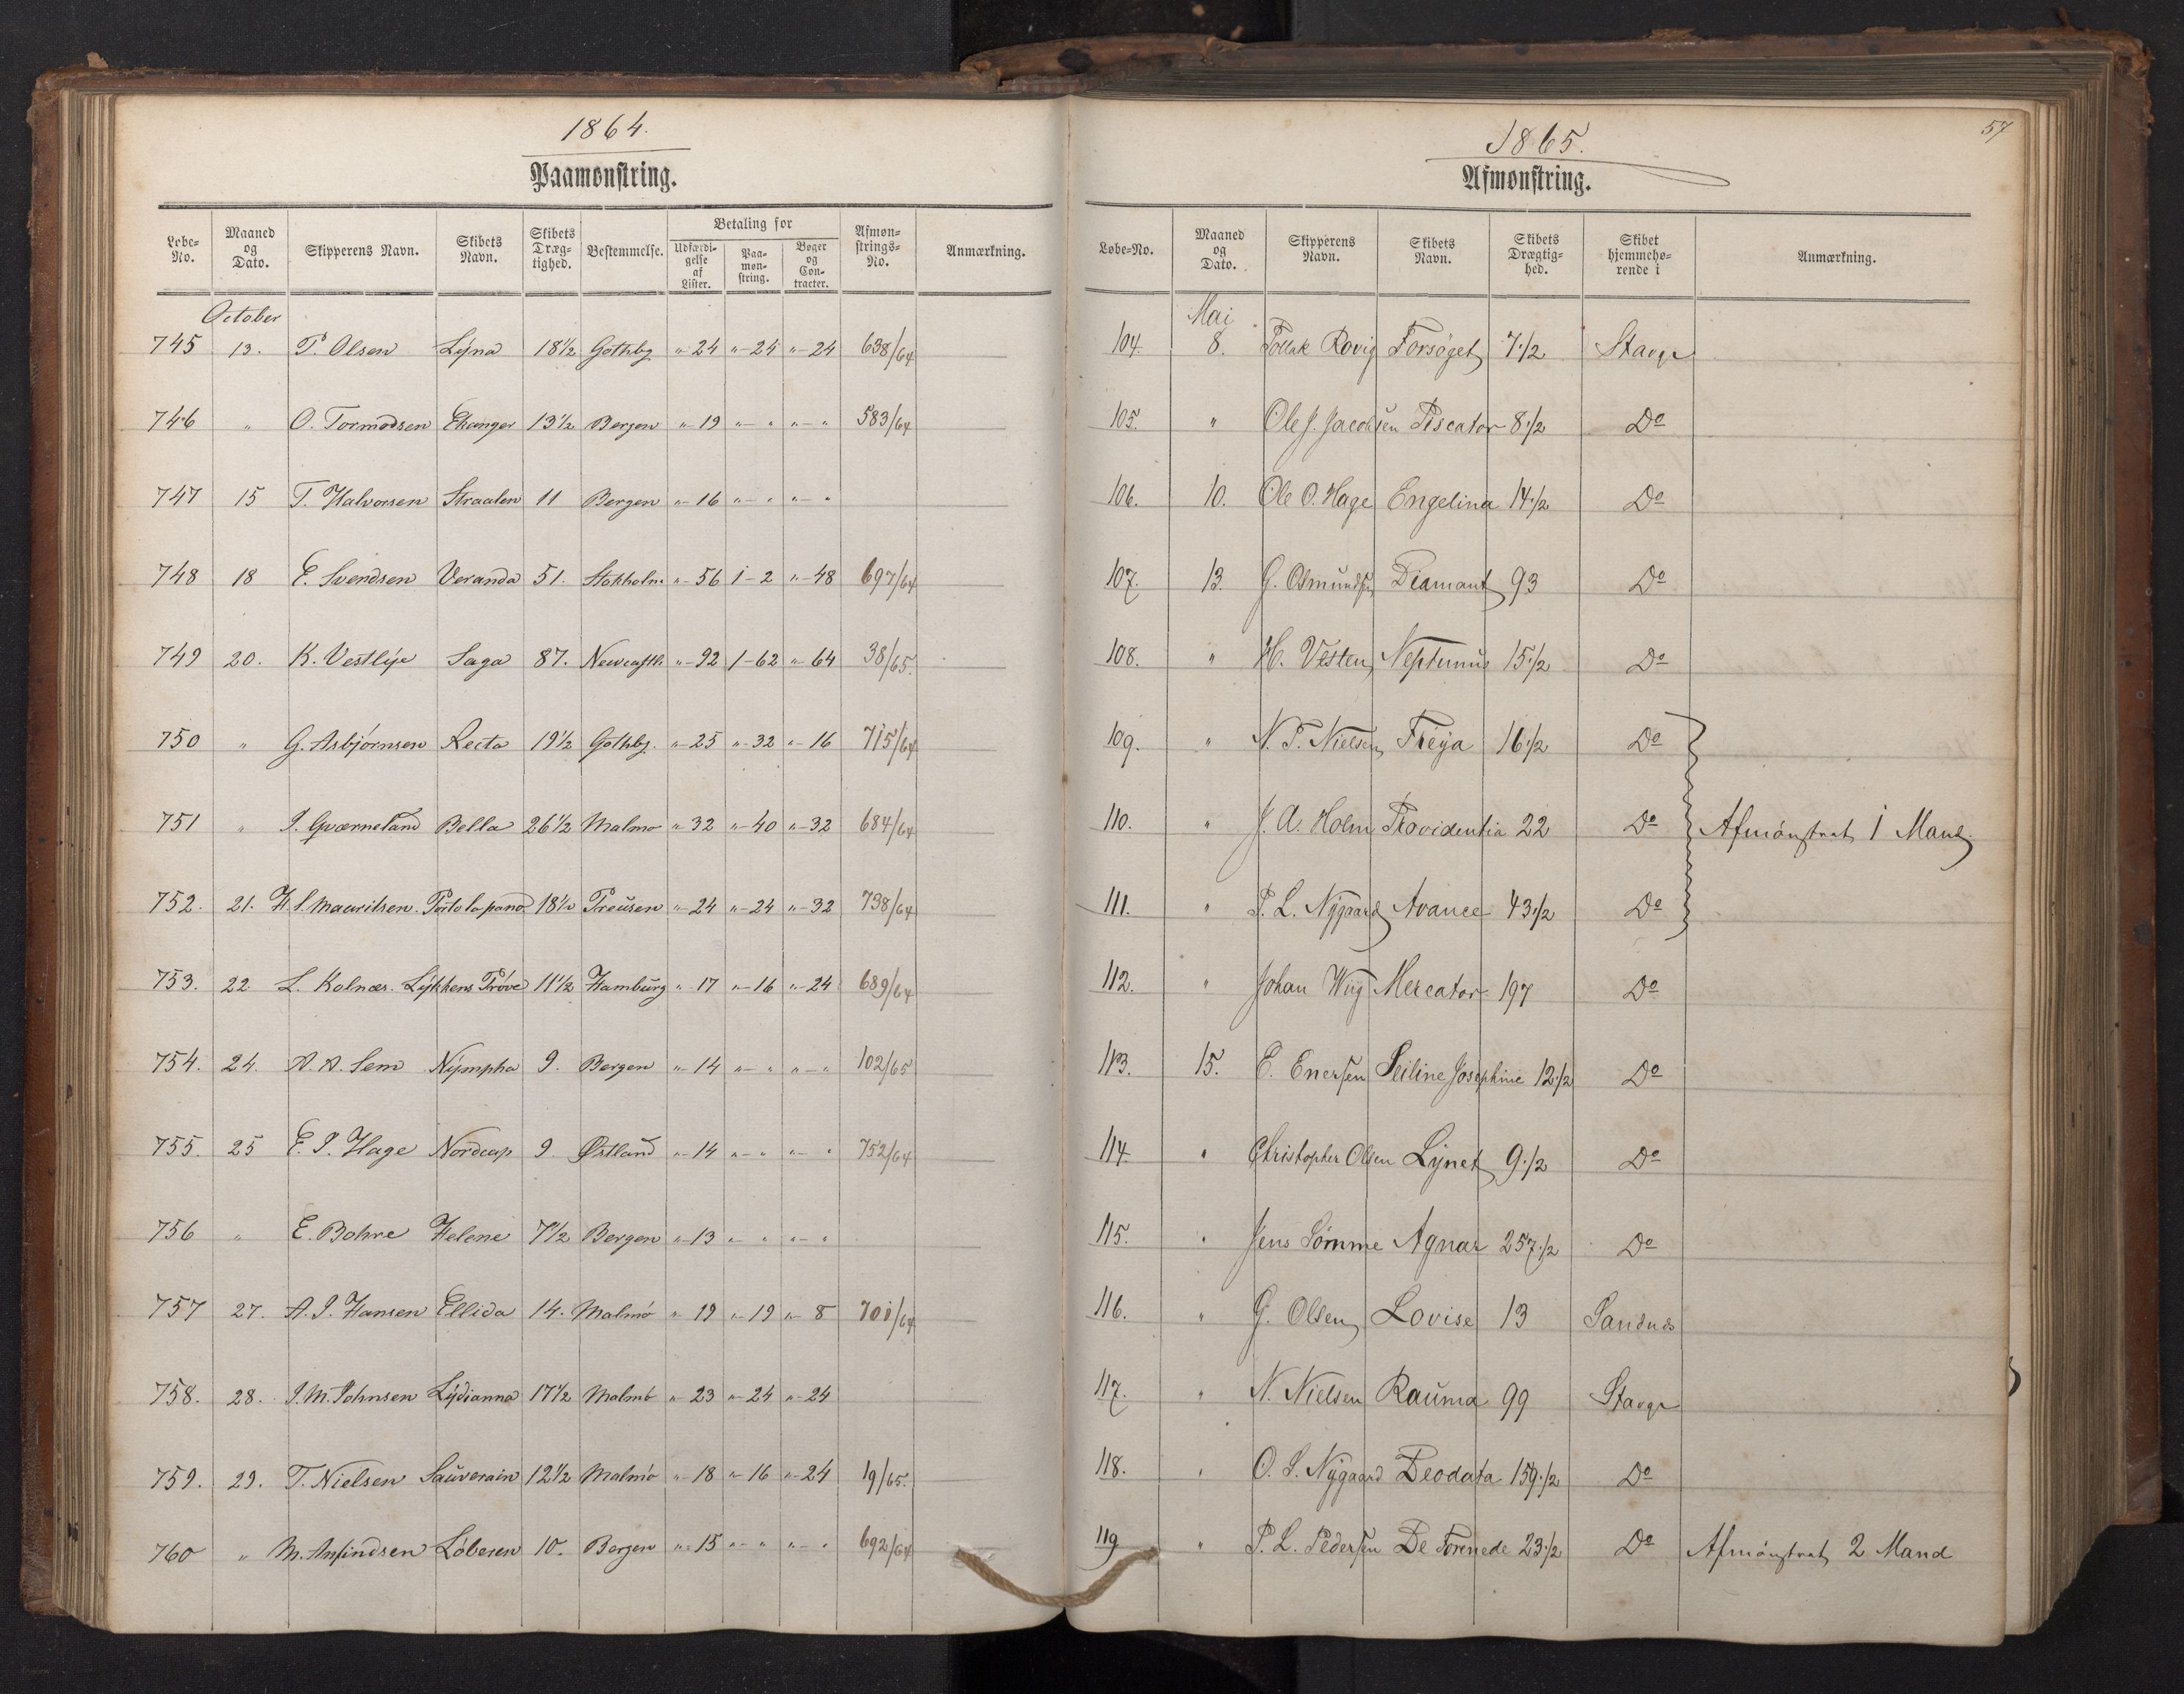 1864.
Paamønstring.
Løbe-No. Maaned og Dato. Skipperens Navn. Skibets Navn. Skibets Dræg-tighed. Bestemmelse. Betaling for Udfærdi-gelse af Lister. Paa-møn-string. Bøger og Con-tracter. Afmøn-strings-No. Anmærkning.
October
745 13. P. Olsen Lÿna 18½ Gothbg „-24 „-24 „-24 638/64
746 „ O. Tormodsen Ehanger 13½ Bergen „-19 „-„ „-„ 583/64
747 15 T. Halvorsen Straalen 11 Bergen „-16 „-„ „-„
748 18 E. Svendsen Veranda 51. Stokholm „-56 1-2 „-48 697/64
749 20. K. Vestlÿe Saga 87. Newcastle „-92 1-62 „-64 38/65.
750 „ G. Asbjörnsen Recta 19½ Gothbg. „-25 „-32 „-16 715/64
751 „ I. Gværneland Bella 26½ Malmo „-32 „-40 „-32 684/64
752. 21. H. S. Mauritsen. 18½ Preusen „-24 „-24 „-32 738/64
753. 22 L. Kolnæs. Lÿkkens Pröve 11½ Hamburg „-17 „-16 „-24 689/64
754. 24. A. A. Sem Nÿmpha 9. Bergen „-14 „-„ „-„ 102/65
755. 25 E. I. Hage Nordcap 9 Østland „-14 „-„ „-„ 752/64
756 „ E. Bohre Helene 7½ Bergen „-13 „-„ „-„
757 27. A. I. Hansen Ellida 14. Malmö „-19 „-19 „-8 701/64
758. 28. I. M. Johnsen Lÿdianna 17½ Malmö „-23 „-24 „-24
759. 29. T. Nielsen Sauverain 12½ Malmö „-18 „-16 „-24 19/65.
760 „ M. Anfindsen Löberen 10. Bergen „-15 „-„ „-„ 692/64
57
1865.
Afmønstring.
Løbe-No. Maaned og Dato. Skipperens Navn. Skibets Navn. Skibets Drægtig-hed. Skibet hjemmehø-rende i Anmærkning.
Mai
104. 8. Tollak Rovig Forsøget 7½ Stavgr
105. „ Ole J. Jacobsen Piscator 8½ Do
106. 10. Ole O. Hage Engelina 14½ Do
107. 13. G. Osmundsen Diamant 93 Do
108. „ H. Vesten Neptunus 15½ Do
109. „ N. P. Nielsen Freÿa 16½ Do
110. „ J. A. Holm Providentia 22 Do Afmönstret 1 Mand
111. „ P. L. Nÿgaard Avance 43½ Do
112. „ Johan Wiig Mercator 197 Do
113. 15. E. Enersen Seiline Josephine 12½ Do
114. „ Christopher Olsen Lÿnet 9½ Do
115. „ Jens Sömme Agnar 257½ Do
116. „ G. Olsen Lovise 13 Sandnes
117. „ N. Nielsen Rauma 99 Stavgr
118. „ O. S. Nÿgaard Deodata 159½ Do
119 „ P. L. Pedersen De Forenede 23½ Do Afmönstret 2 Mand